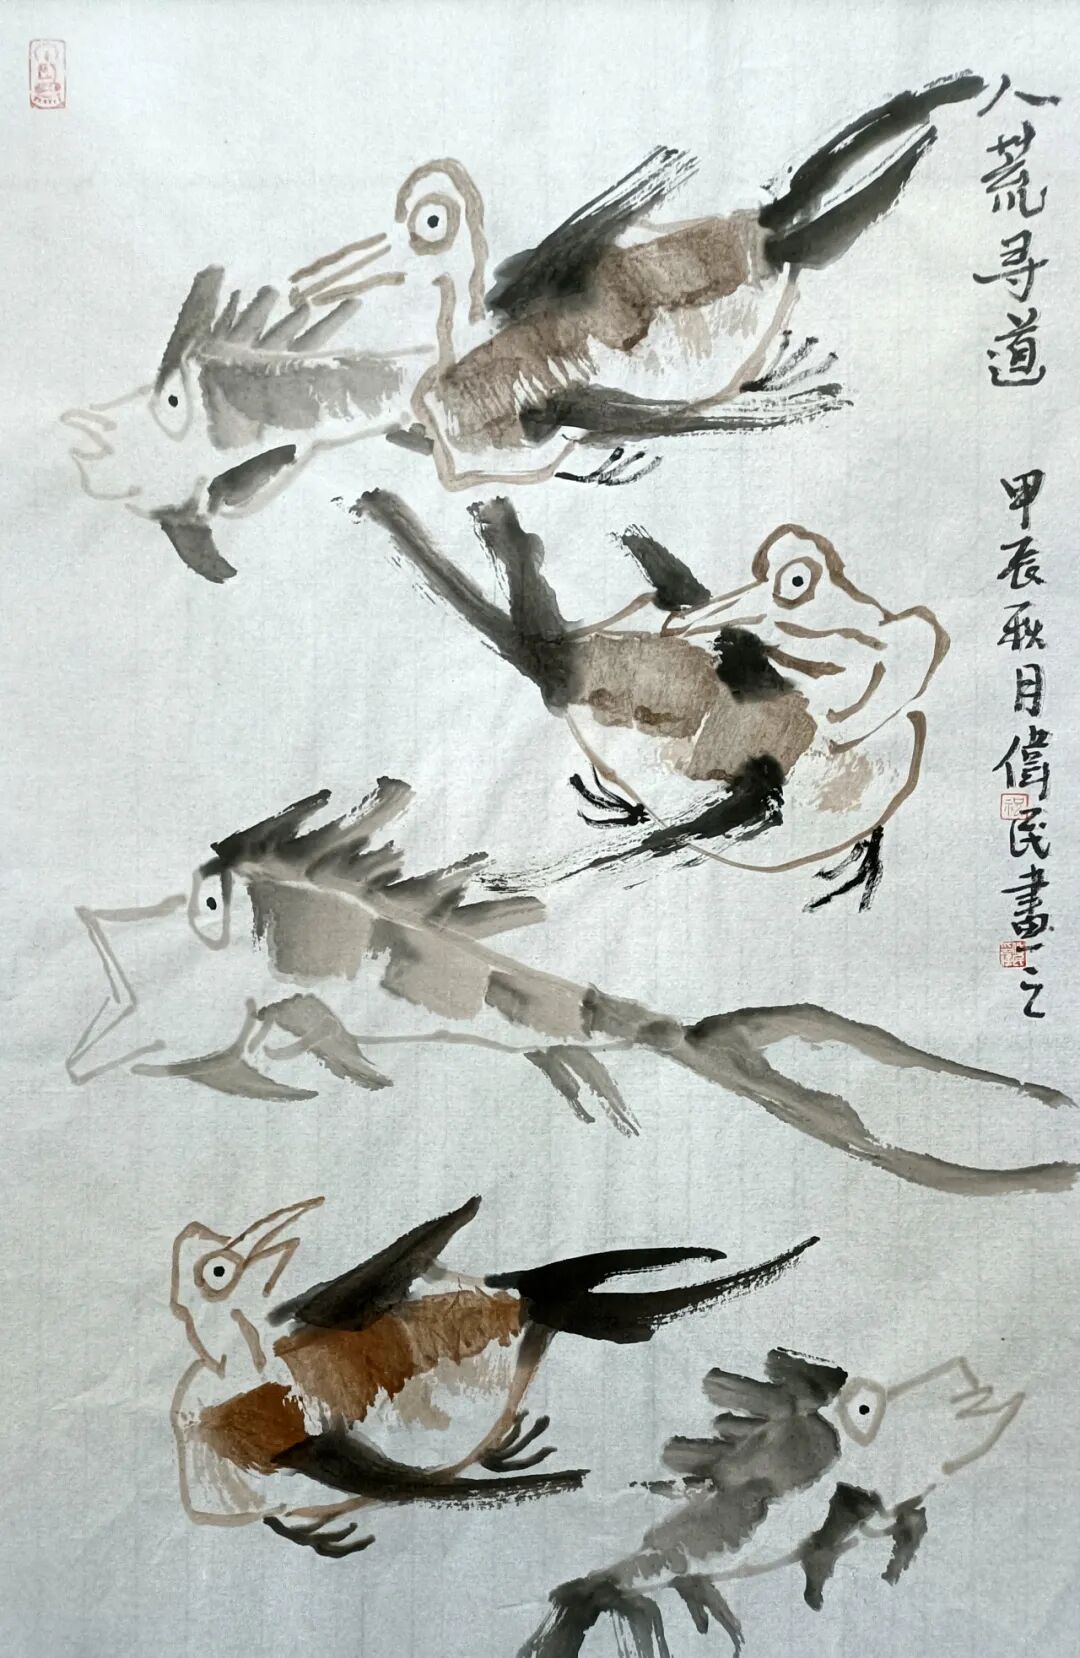 八荒寻道 甲辰秋月偉民畫之
祝